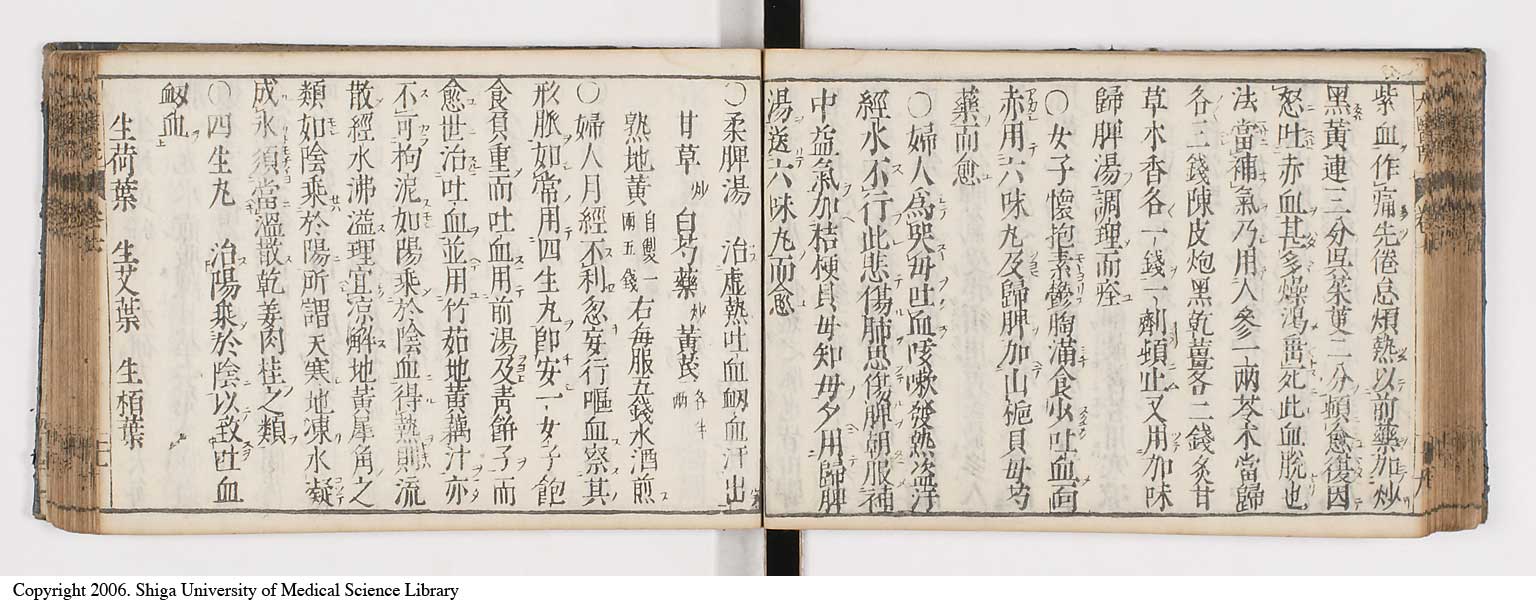 紫血作痛先倦怠煩熱以前藥加炒
黑黄連三分呉茱萸二分頓愈復因
怒吐赤血甚多燥渇垂死此血脱也
法當補氣乃用人參一兩苓术當歸
各三錢陳皮炮黑乾薑各二錢炙甘
草木香各一錢一劑頓止又用加味
歸脾湯調理而痊
〇女子懷抱素鬱胸滿食少吐血面
赤用六味丸及歸脾加山梔貝母芍
藥而愈
〇婦人爲哭母吐血咳嗽發熱盗汗
經水不行此悲傷肺思傷脾朝服補
中益氣加桔梗貝母知母夕用歸脾
湯送六味丸而愈
〇柔脾湯 治虚熱吐血衂血汗出
甘草炒 白芍藥炒 黄芪各半兩
熟地黄自製一兩五錢 右毎服五錢水酒煎
〇婦人月經不利忽妄行嘔血察其
形脈如常用四生丸即安一女子飽
食負重而吐血用前湯及青餅子而
愈世治吐血並用竹茹地黄藕汁亦
不可拘泥如陽乘於陰血得熱則流
散經水沸溢理宜凉解地黄犀角之
類如陰乘於陽所謂天寒地凍水凝
成氷須當溫散乾姜肉桂之類
〇四生丸 治陽乘於陰以致吐血
衂血
生荷葉 生艾葉 生栢葉
Copyright 2006. Shiga University of Medical Science Library